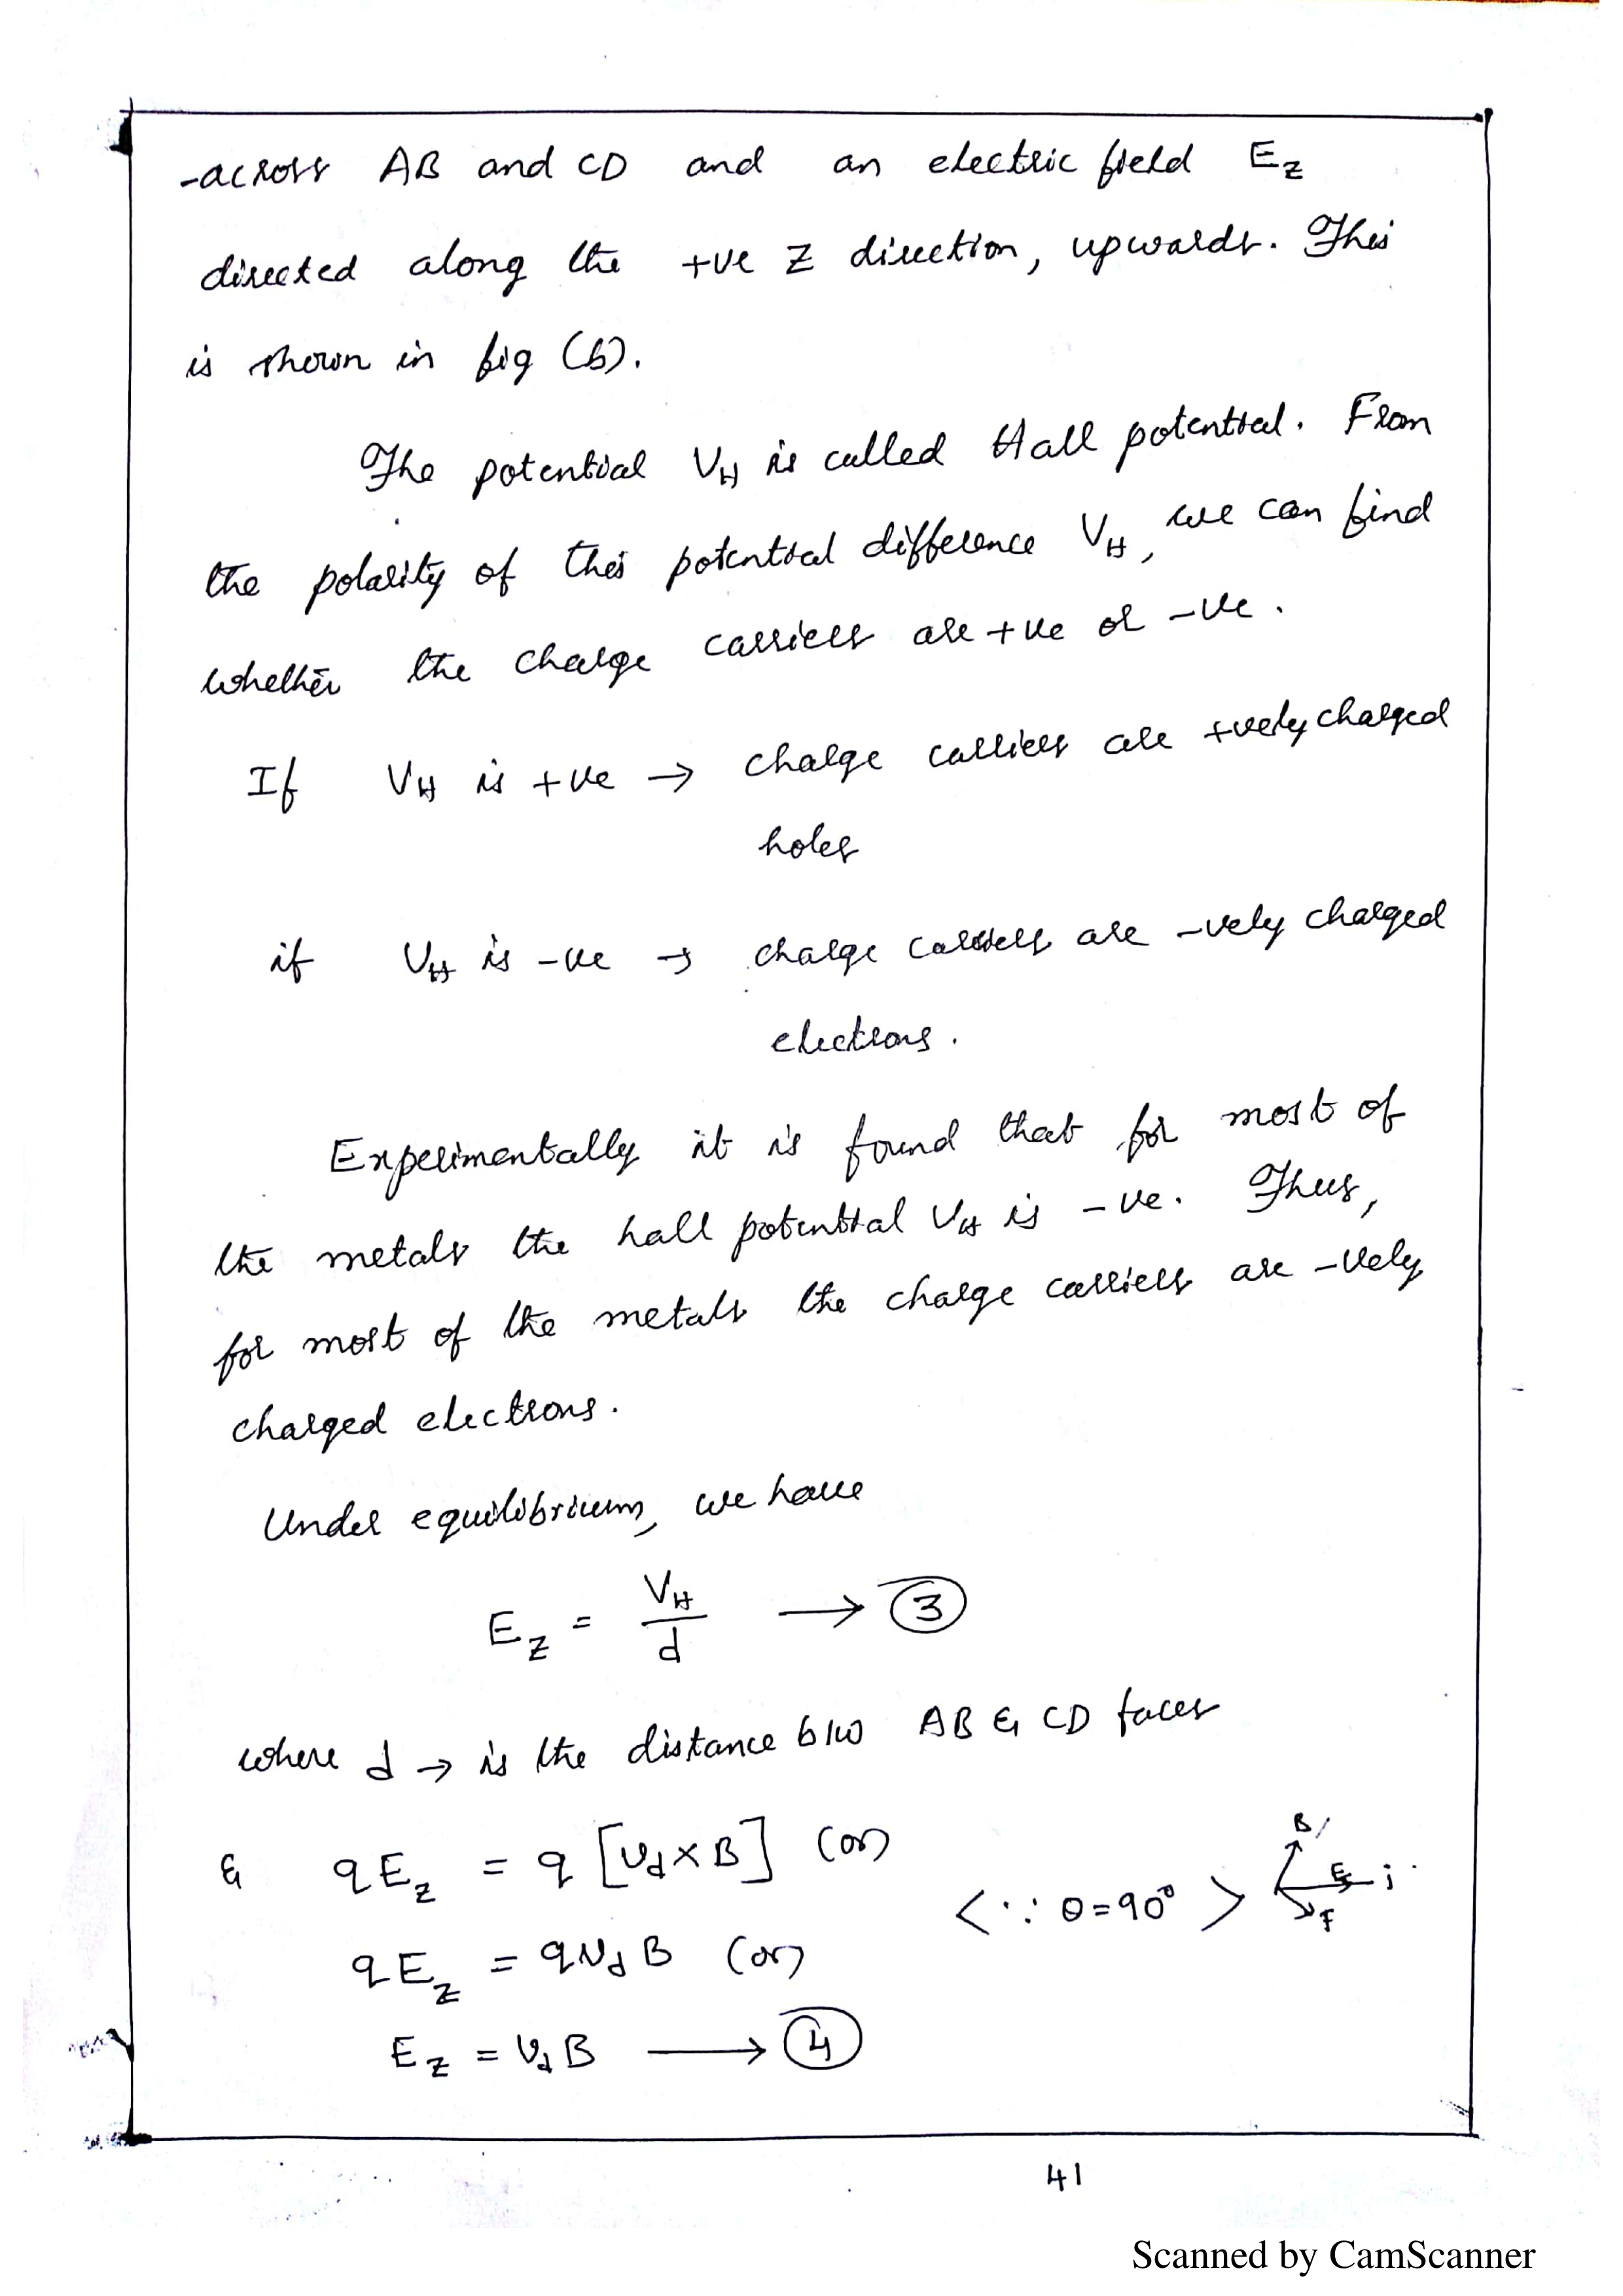 -across AB and CD and an electric field E_z
directed along the +ve Z direction, upwards. This
is shown in fig (b).
The potential V_H is called Hall potential. From
the polarity of this potential difference V_H, we can find
whether the charge carriers are +ve or -ve.
If V_H is +ve → charge carriers are +vely charged
holes
if V_H is -ve → charge carriers are -vely charged
electrons.
Experimentally it is found that for most of
the metals the hall potential V_H is -ve. Thus,
for most of the metals the charge carriers are -vely
charged electrons.
Under equilibrium, we have
E_z = V_H / d → ③
where d → is the distance b/w AB & CD faces
& qE_z = q [v_d × B] (or)
<∵ θ=90°> B i F
qE_z = qv_d B (or)
E_z = v_d B → ④
41
Scanned by CamScanner